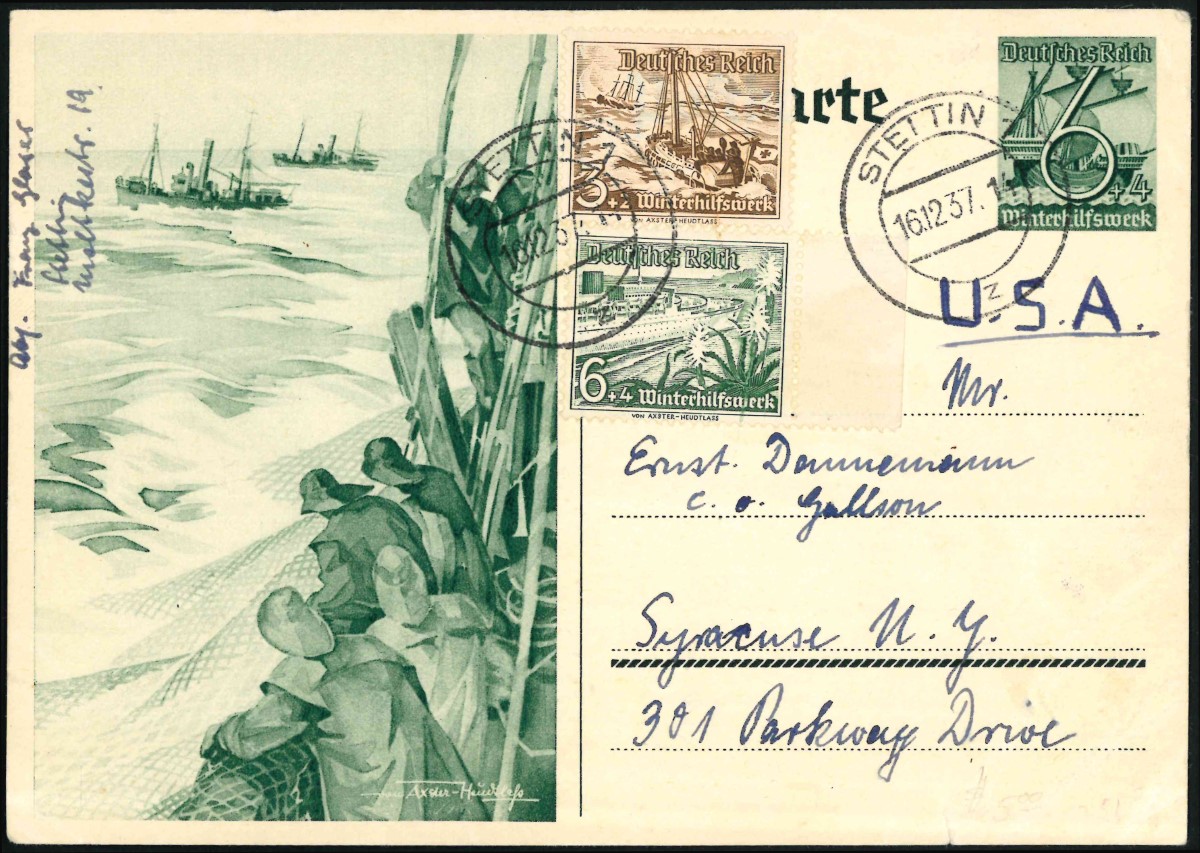 Deutsches Reich
3+2 Winterhilfswerk
VON AXSTER-HEUDTLASS
Deutsches Reich
6+4 Winterhilfswerk
VON AXSTER-HEUDTLASS
arte
Deutsches Reich
6
+4
Winterhilfswerk
STETTIN
16.12.37.
z
STETTIN
16.12.37. 14
z
U.S.A.
Mr.
Ernst. Dannemann
c. o. Gallson
Syracuse N. Y.
301 Parkway Drive
Abs. Franz Glaser
Stettin
19.
von Axster-Heudtlaß